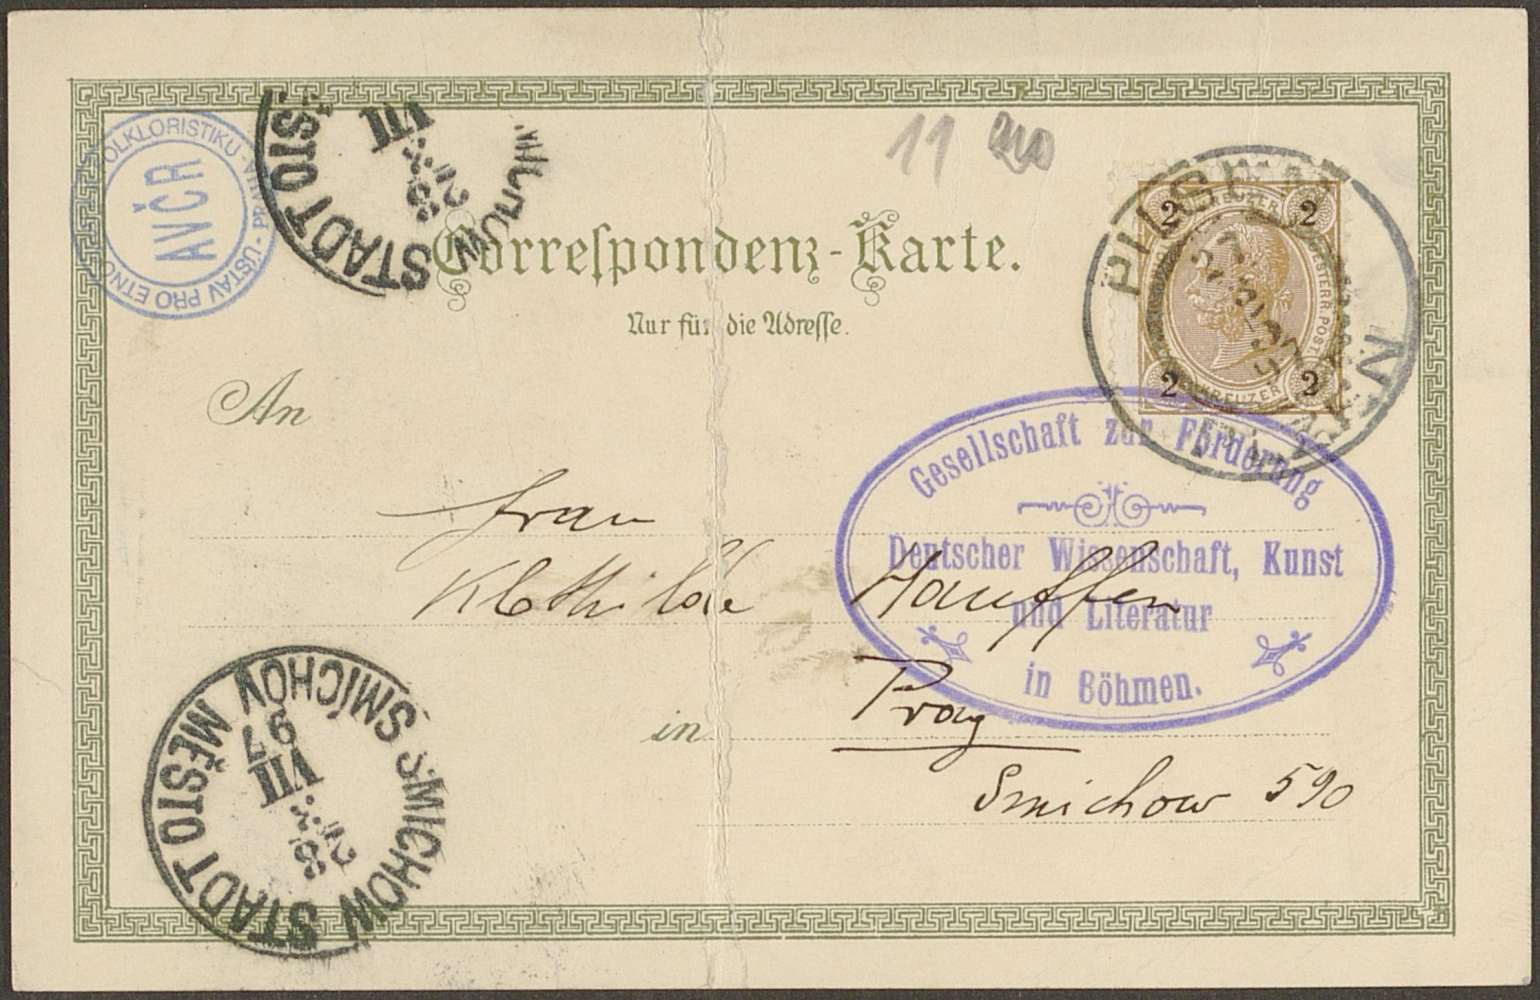 11 20
Correspondenz-Karte.
Nur für die Adresse.
An
Frau
Klothilde Hauffen
in Prag
Smichow 590
Gesellschaft zur Förderung
Deutscher Wissenschaft, Kunst
und Literatur
in Böhmen.
AVČR
ÚSTAV PRO ETNO FOLKLORISTIKU - PR
STADT
MĚSTO
VII
28
SMÍCHOV MĚSTO
SMICHOW STADT
28
VII
97
PILSEN
2 2
KREUZER
OESTERR. POST
2 2
KREUZER